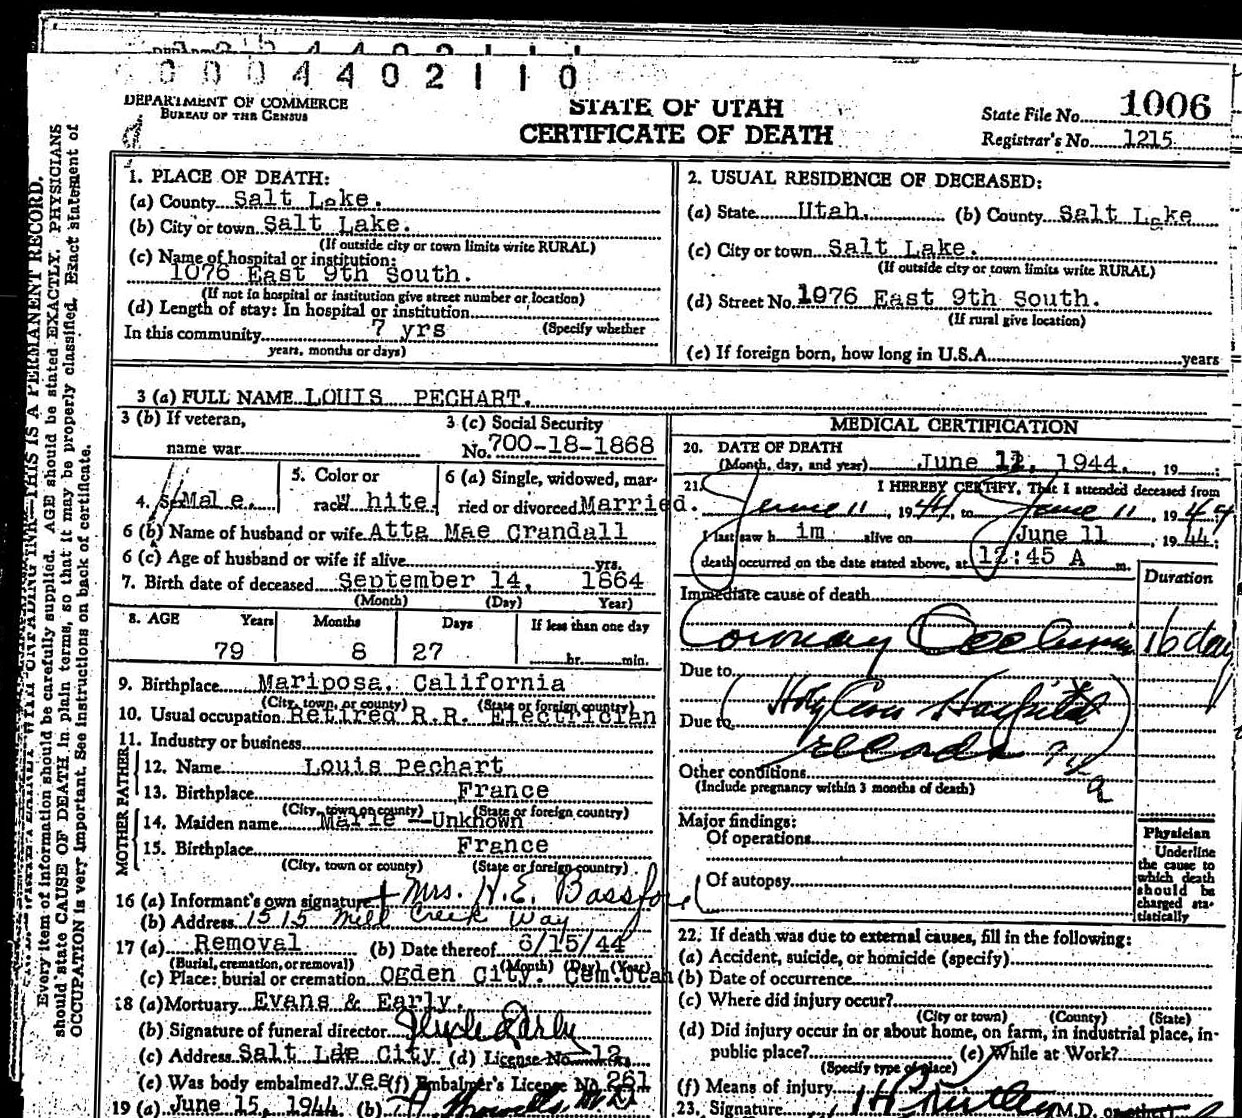 0004402110
DEPARTMENT OF COMMERCE
BUREAU OF THE CENSUS
STATE OF UTAH
CERTIFICATE OF DEATH
State File No. 1006
Registrar's No. 1215
THIS IS A PERMANENT RECORD.
Every item of information should be carefully supplied. AGE should be stated EXACTLY. PHYSICIANS
should state CAUSE OF DEATH in plain terms, so that it may be properly classified. Exact statement of
OCCUPATION is very important. See instructions on back of certificate.
1. PLACE OF DEATH:
(a) County Salt Lake.
(b) City or town Salt Lake.
(If outside city or town limits write RURAL)
(c) Name of hospital or institution:
1076 East 9th South.
(If not in hospital or institution give street number or location)
(d) Length of stay: In hospital or institution
In this community 7 yrs (Specify whether
years, months or days)
2. USUAL RESIDENCE OF DECEASED:
(a) State Utah. (b) County Salt Lake
(c) City or town Salt Lake.
(If outside city or town limits write RURAL)
(d) Street No. 1076 East 9th South.
(If rural give location)
(e) If foreign born, how long in U.S.A. years
3 (a) FULL NAME LOUIS PECHART.
3 (b) If veteran,
name war
3 (c) Social Security
No. 700-18-1868
4. Sex Male.
5. Color or
race White.
6 (a) Single, widowed, mar-
ried or divorced Married.
6 (b) Name of husband or wife Atta Mae Crandall
6 (c) Age of husband or wife if alive yrs.
7. Birth date of deceased September 14, 1864
(Month) (Day) Year)
8. AGE Years Months Days If less than one day
79 8 27 hr. min.
9. Birthplace Mariposa, California
(City, town, or county) (State or foreign country)
10. Usual occupation Retired R.R. Electrician
11. Industry or business
FATHER
12. Name Louis Pechart
13. Birthplace France
(City, town or county) (State or foreign country)
MOTHER
14. Maiden name Marie --Unknown
15. Birthplace France
(City, town or county) (State or foreign country)
16 (a) Informant's own signature Mrs. H.E. Bassford
(b) Address 1515 Mill Creek Way
17 (a) Removal (b) Date thereof 6/15/44
(Burial, cremation, or removal) (Month) (Day) (Year)
(c) Place: burial or cremation Ogden City. Cem. Utah
18 (a) Mortuary Evans & Early.
(b) Signature of funeral director
(c) Address Salt Lde City. (d) License No. 12
(e) Was body embalmed? yes (f) Embalmer's License No. 261
19 (a) June 15, 1944 (b)
MEDICAL CERTIFICATION
20. DATE OF DEATH
(Month, day, and year) June 12, 1944. , 19 ;
21. I HEREBY CERTIFY, That I attended deceased from
June 11, 1944, to June 11, 1944
I last saw h im alive on June 11, 1944;
death occurred on the date stated above, at 12:45 A m.
Immediate cause of death
Duration
Coronary Occlusion 16 day
Due to
(Holy Cross Hospital
Due to
records
Other conditions
(Include pregnancy within 3 months of death)
Major findings:
Of operations
Of autopsy
Physician
Underline
the cause to
which death
should be
charged sta-
tistically
22. If death was due to external causes, fill in the following:
(a) Accident, suicide, or homicide (specify)
(b) Date of occurrence
(c) Where did injury occur?
(City or town) (County) (State)
(d) Did injury occur in or about home, on farm, in industrial place, in-
public place? (e) While at Work?
(Specify type of place)
(f) Means of injury
23. Signature M.D.